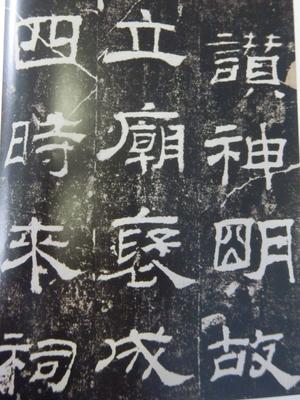 讃神明故
立廟襃成
四時来祠